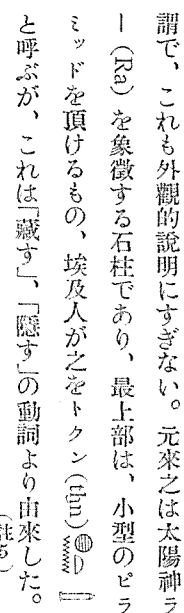 謂で、これも外觀的說明にすぎない。元來之は太陽神ラ
ー(Ra)を象徵する石柱であり、最上部は、小型のピラ
ミッドを頂けるもの、埃及人が之をトクン(tḫn)
と呼ぶが、これは「藏す」、「隱す」の動詞より由來した。(註5)